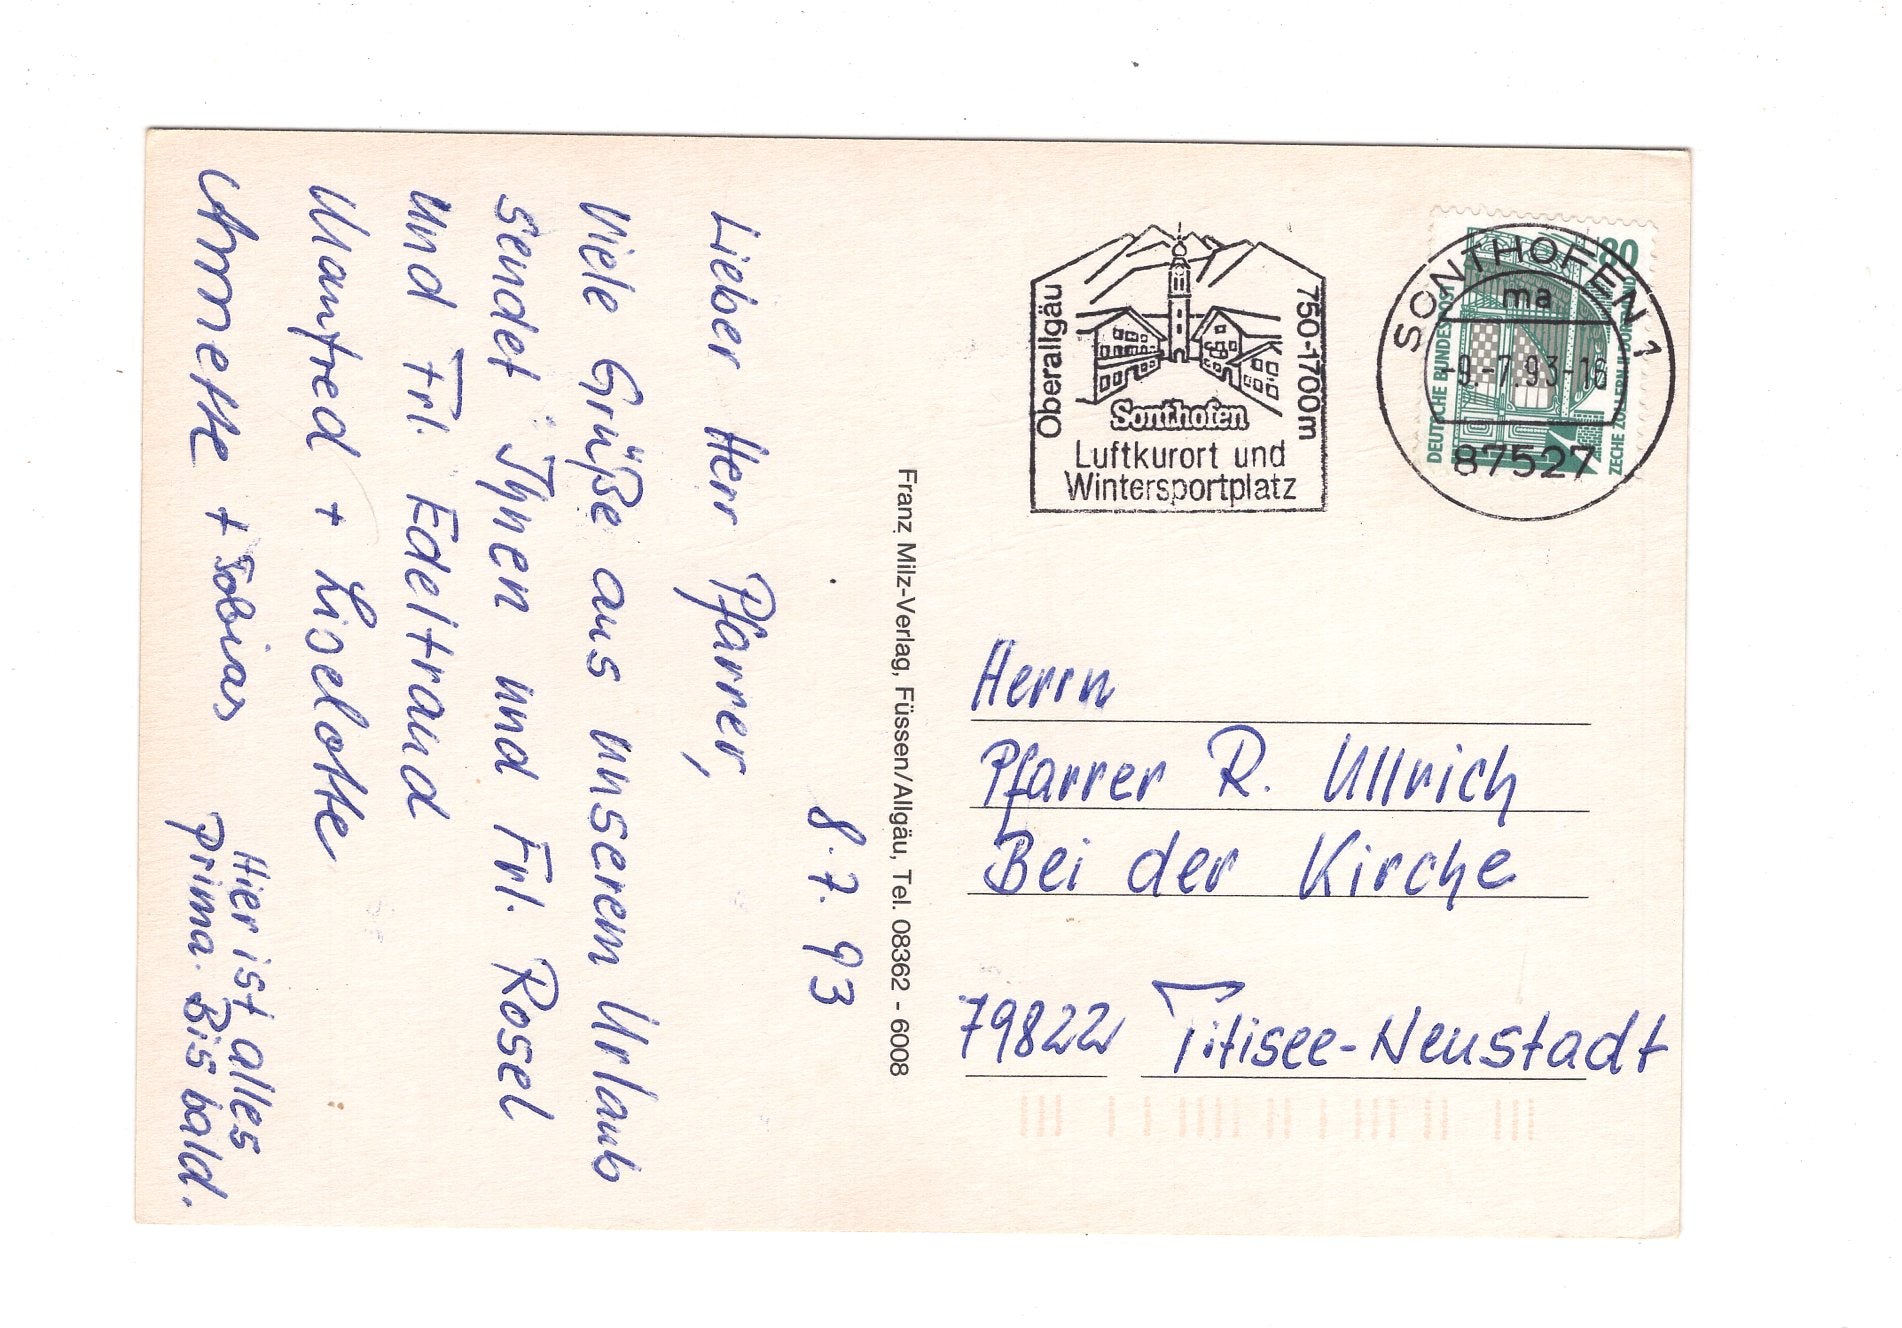 8.7.93
Lieber Herr Pfarrer,
Viele Grüße aus unserem Urlaub
sendet Ihnen und Frl. Rosel
und Frl. Edeltraud
Manfred + Liselotte
Annette + Tobias
Hier ist alles
prima. Bis bald.
Franz Milz-Verlag, Füssen/Allgäu, Tel. 08362 - 6008
Oberallgäu
750-1700m
Sonthofen
Luftkurort und
Wintersportplatz
SONTHOFEN 1
ma
-9.-7.93-16
87527
80
DEUTSCHE BUNDESPOST
ZECHE ZOLLERN II DORTMUND
Herrn
Pfarrer R. Ullrich
Bei der Kirche
79822 Titisee-Neustadt